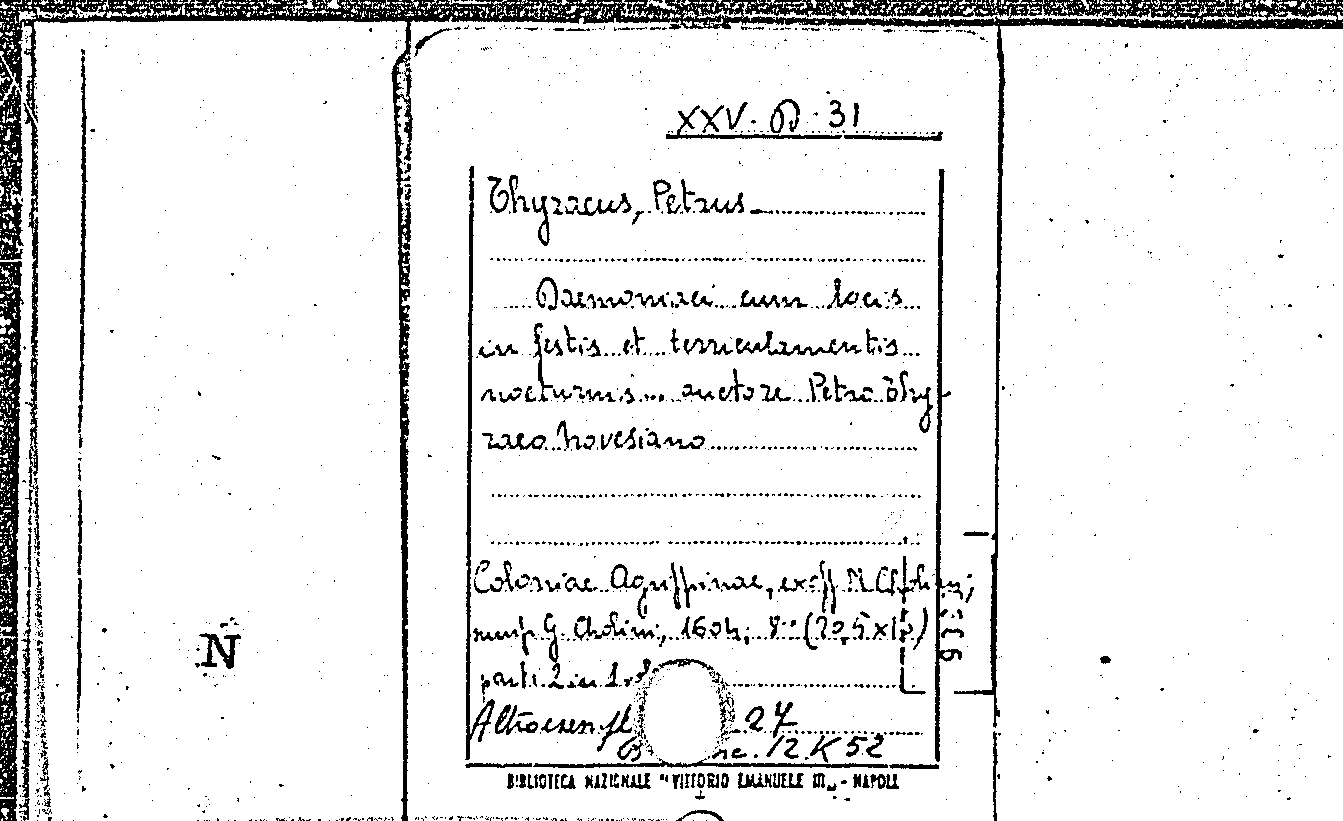 XXV. D. 31
Thyraeus, Petrus
Daemoniaci cum locis
in festis et terriculamentis
nocturnis... auctore Petro Thy-
raeo Novesiano
Coloniae Agrippinae, ex off. M. Cholini;
sump. G. Cholini, 1604; 8º (20,5x
parti 2 in 1
Altro esempl 27
12 K 52
N
BIBLIOTECA NAZIONALE "VITTORIO EMANUELE III" - NAPOLI